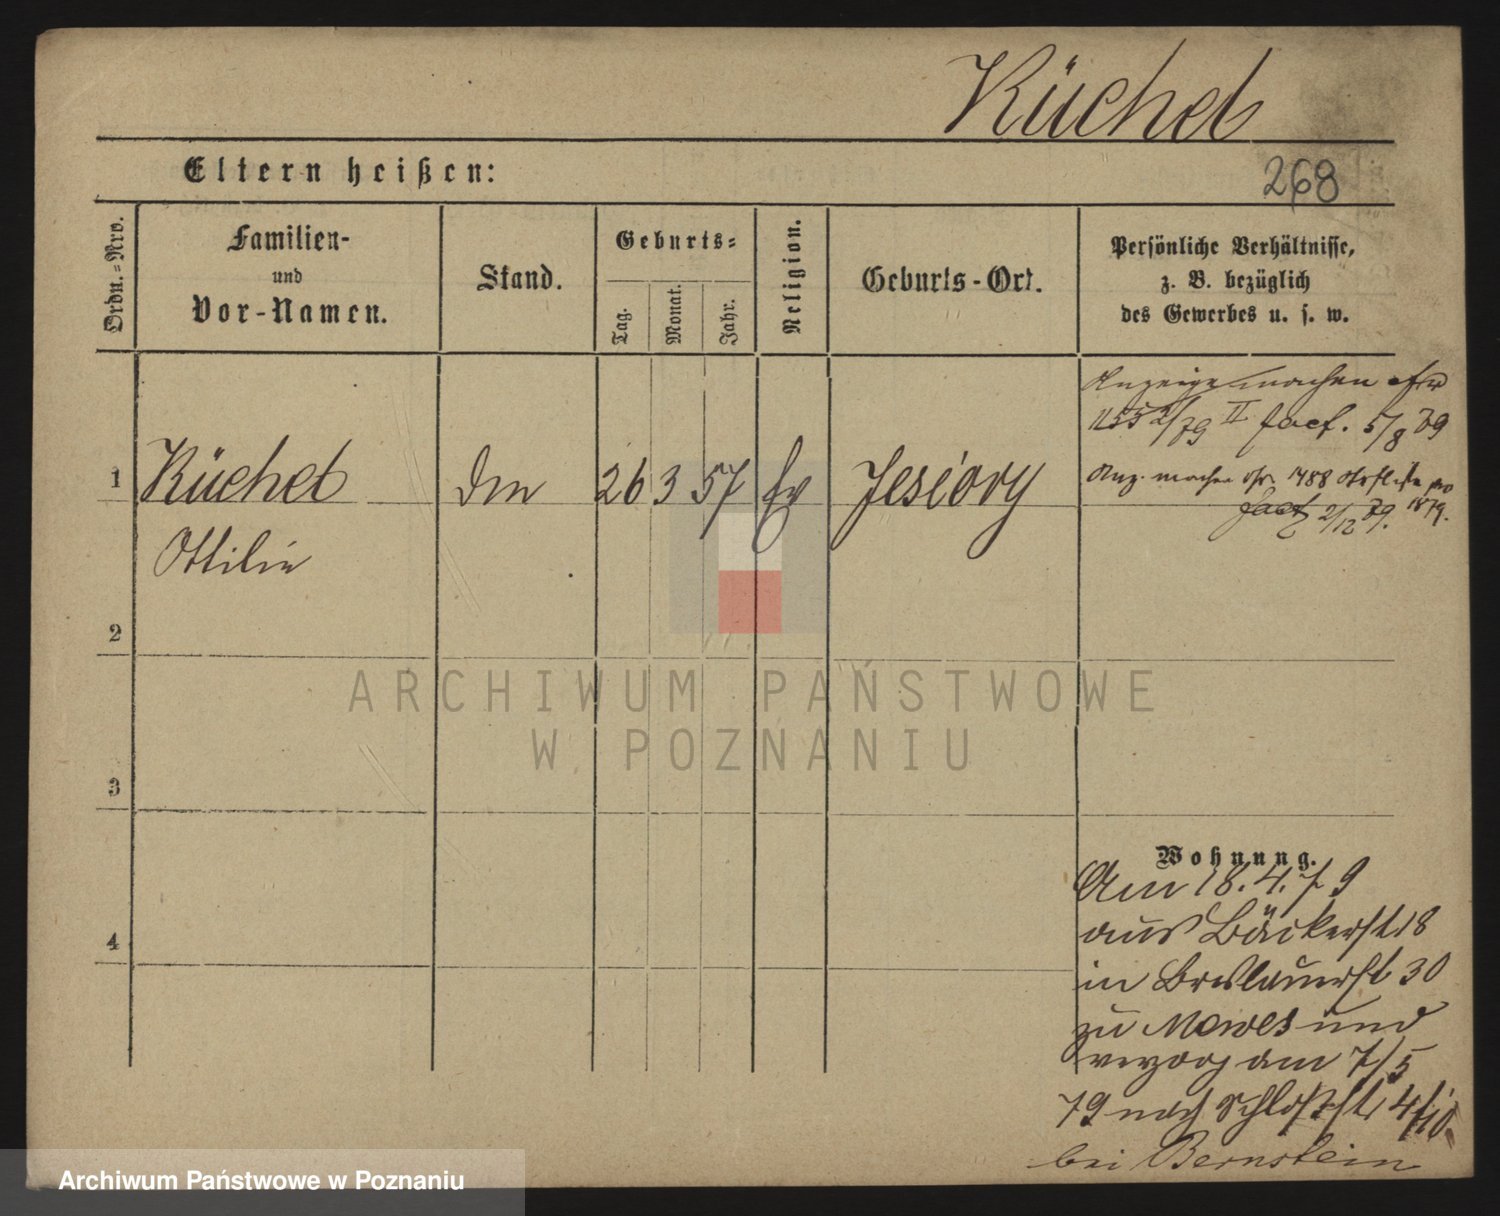 Küchel
Eltern heißen:
268
Ordn.-Nro.
Familien-
und
Vor-Namen.
Stand.
Geburts-
Tag.
Monat.
Jahr.
Religion.
Geburts-Ort.
Persönliche Verhältnisse,
z. B. bezüglich
des Gewerbes u. s. w.
Anzeige machen
II fact. 5/8 79
1 Küchel 26 3 57 Ev Jesiory
Ottilie
Anz. machen 1488
fact 2/12 79. 1879.
2
3
4
Wohnung.
Am 18.4.79
aus Bäckerst 18
in Breslauerst 30
zu Mewes und
verzog am 7/5
79 nach Schloßst 4
bei Bernstein
ARCHIWUM PAŃSTWOWE
W POZNANIU
Archiwum Państwowe w Poznaniu